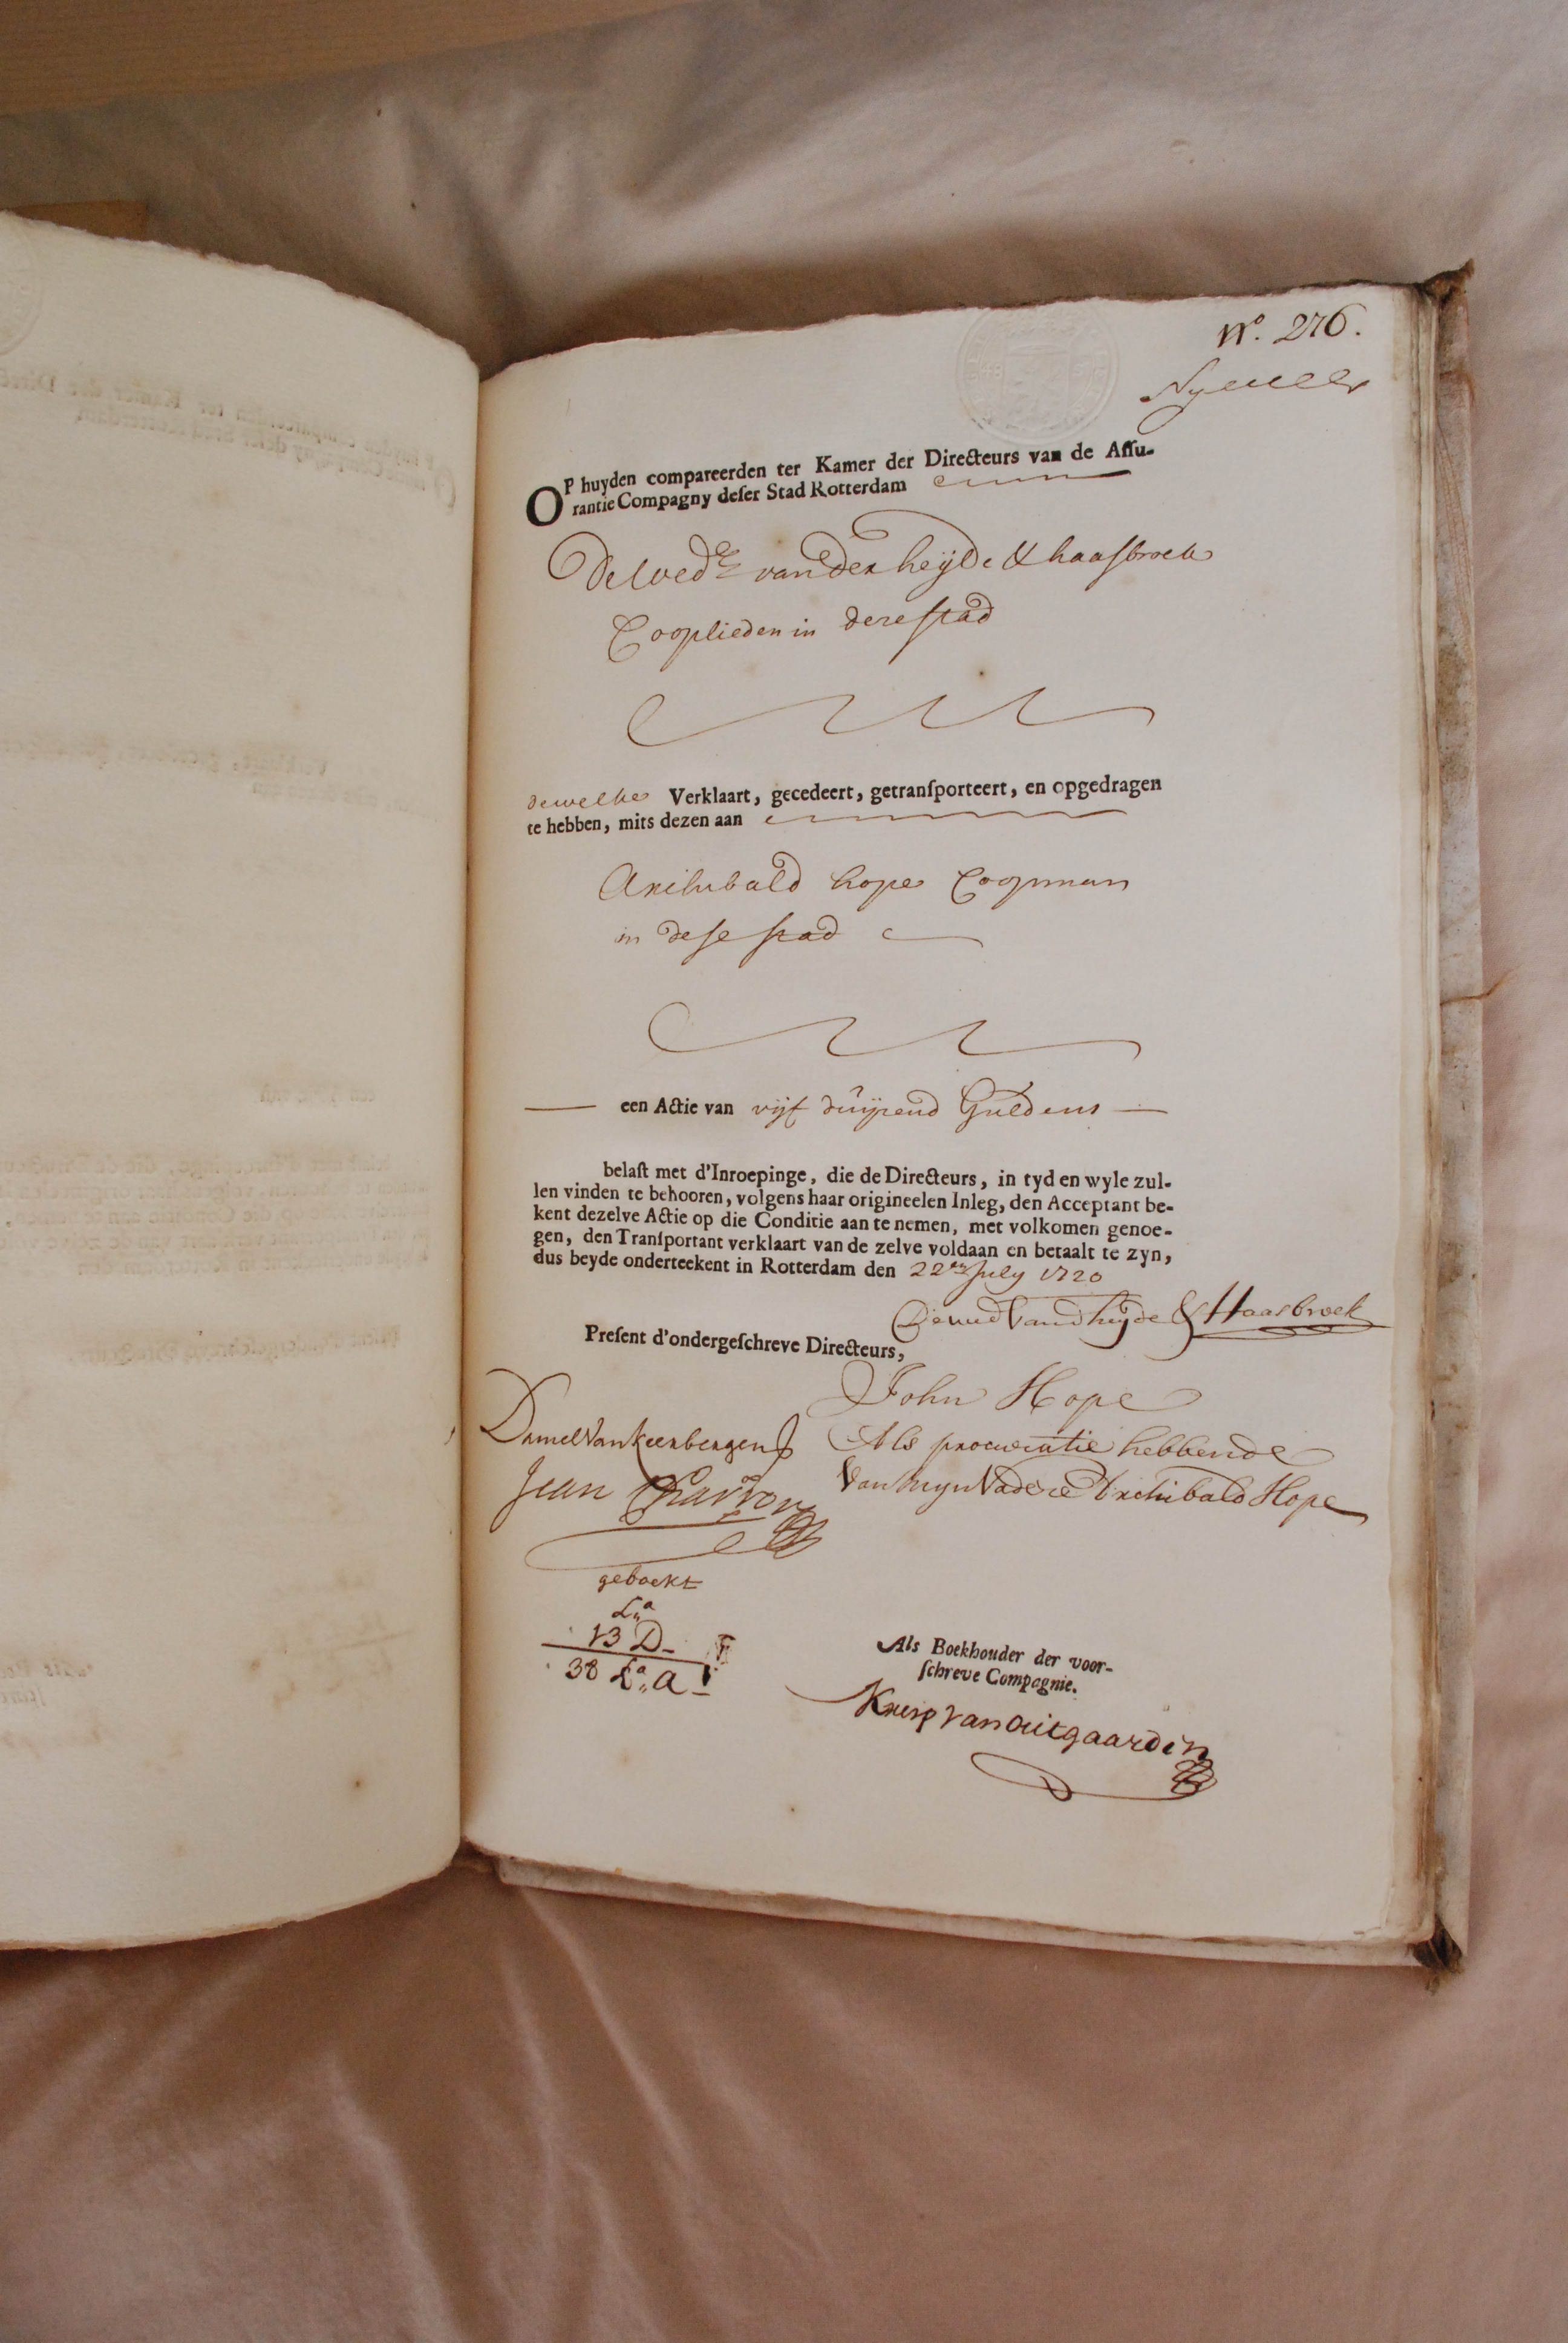 N.º 276.
OP huyden compareerden ter Kamer der Directeurs van de Aſſu-
rantie Compagny deſer Stad Rotterdam
De Wed.e vander heÿde & haasbroek
Cooplieden in dese stad
dewelke Verklaart, gecedeert, getranſporteert, en opgedragen
te hebben, mits dezen aan
Archibald hope Coopman
in dese stad
een Actie van vijf duijsend Guldens
belaſt met d'Inroepinge, die de Directeurs, in tyd en wyle zul-
len vinden te behooren, volgens haar origineelen Inleg, den Acceptant be-
kent dezelve Actie op die Conditie aan te nemen, met volkomen genoe-
gen, den Tranſportant verklaart van de zelve voldaan en betaalt te zyn,
dus beyde onderteekent in Rotterdam den 22en July 1720
De wed Vand heyde & Haasbroek
Preſent d'ondergeſchreve Directeurs,
John Hope
Als procuratie hebbende
Van Mijn Vader Archibald Hope
Daniel Van Keerbergen
Jean Charron
geboekt
La
13 D
38 La. A
Als Boekhouder der voor-
ſchreve Compagnie.
van Outgaarden